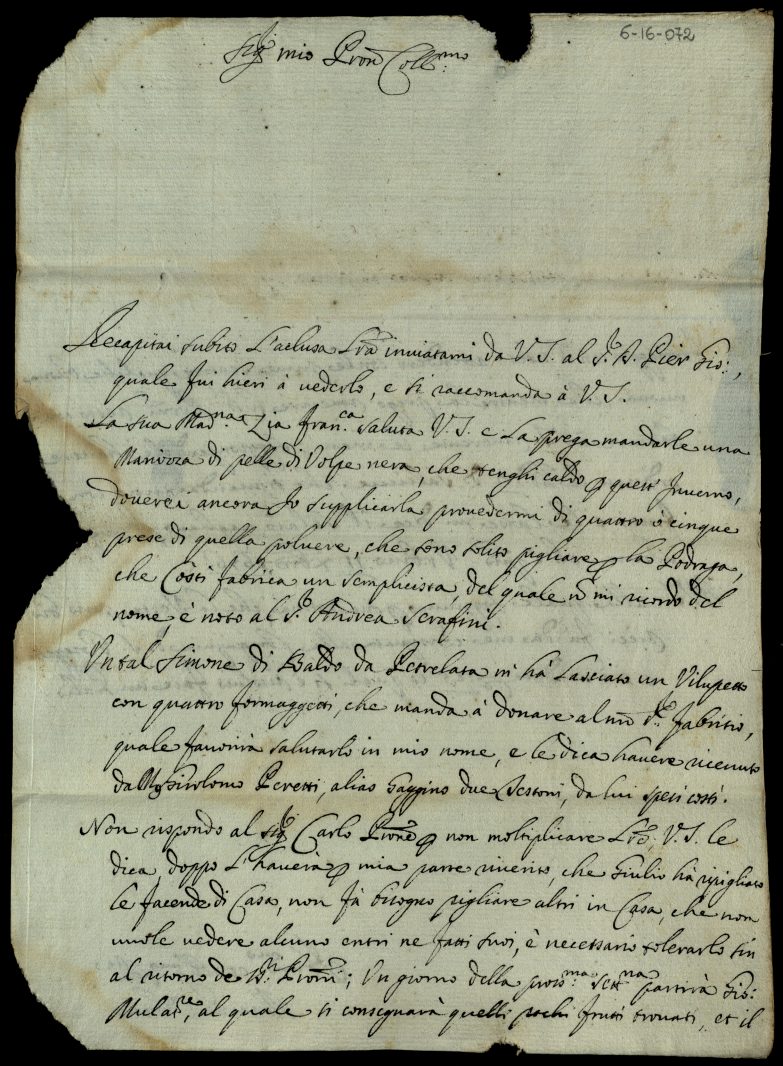 6-16-072
Sig.r mio Pron Coll.mo
Recapitai subito l'aclusa Lra inviatami da V. S. al S.r D. Pier Gio:,
quale fui hieri à vederlo, e si raccomanda à V. S.
La sua Mad.na Zia Fran.ca saluta V. S. e la prega mandarle una
Manizza di pelle di Volpe nera, che tenghi caldo p quest' Inverno,
doverei ancora Io supplicarla provedermi di quattro ò cinque
prese di quella polvere, che sono solito pigliare p la Podraga,
che Costì fabrica un semplicista, del quale nõ mi ricordo del
nome, è noto al S.r Andrea Serafini.
Un tal Simone di Baldo da Petrelata m hà lasciato un Vilupetto
con quattro formaggetti, che manda à donare al nrõ S.r Fabritio,
quale favorirà salutarlo in mio nome, e le dica havere ricevuto
da Girolomo Peretti, alias Gappino due Testoni, da lui spesi costì.
Non rispondo al Sig.r Carlo Prone p non moltiplicare Lre, V. S. le
dica, doppo l'haverà p mia parte riverito, che Giulio hà ripigliato
le facende di Casa, non fà bisogno pigliare altri in Casa, che non
vuole vedere alcuno entri ne fatti suoi, è necessario tolerarlo sin
al ritorno de Pronĩ; Un giorno della pross.ma sett.na partirà Gio:
Mulat.re, al quale si consegnarà quelli pochi frutti trovati, et il